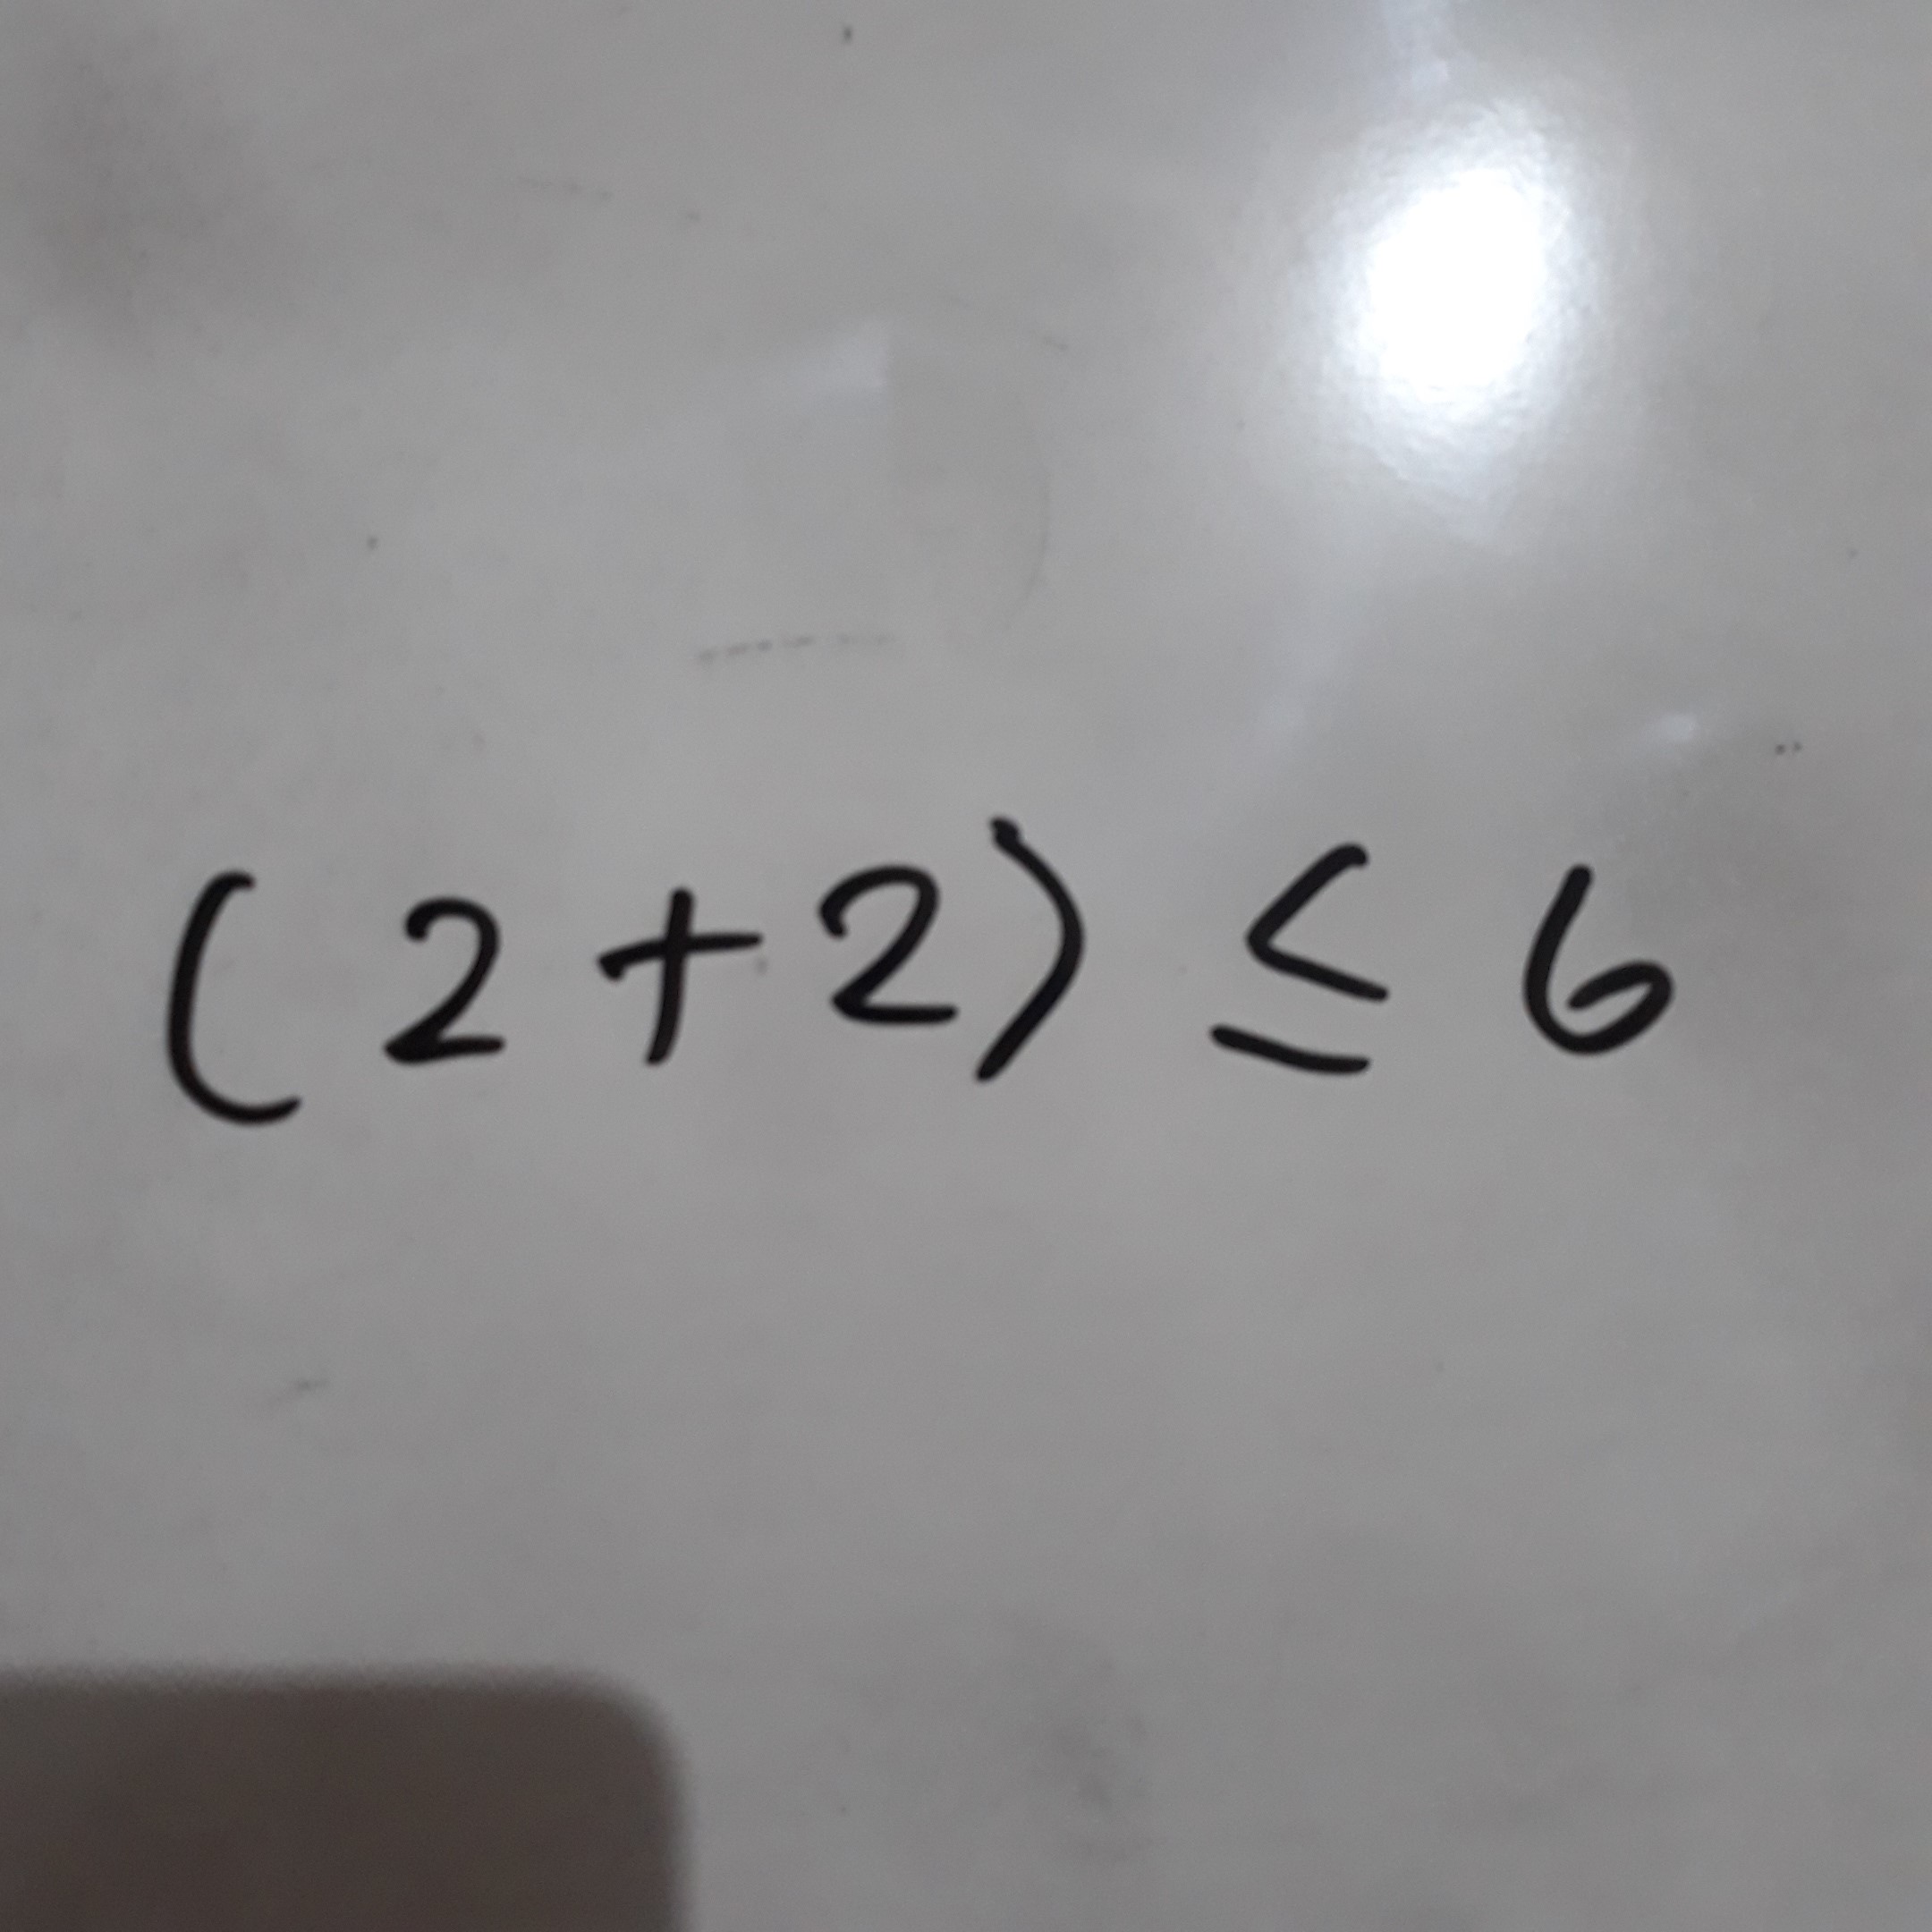 (2+2) ≤ 6